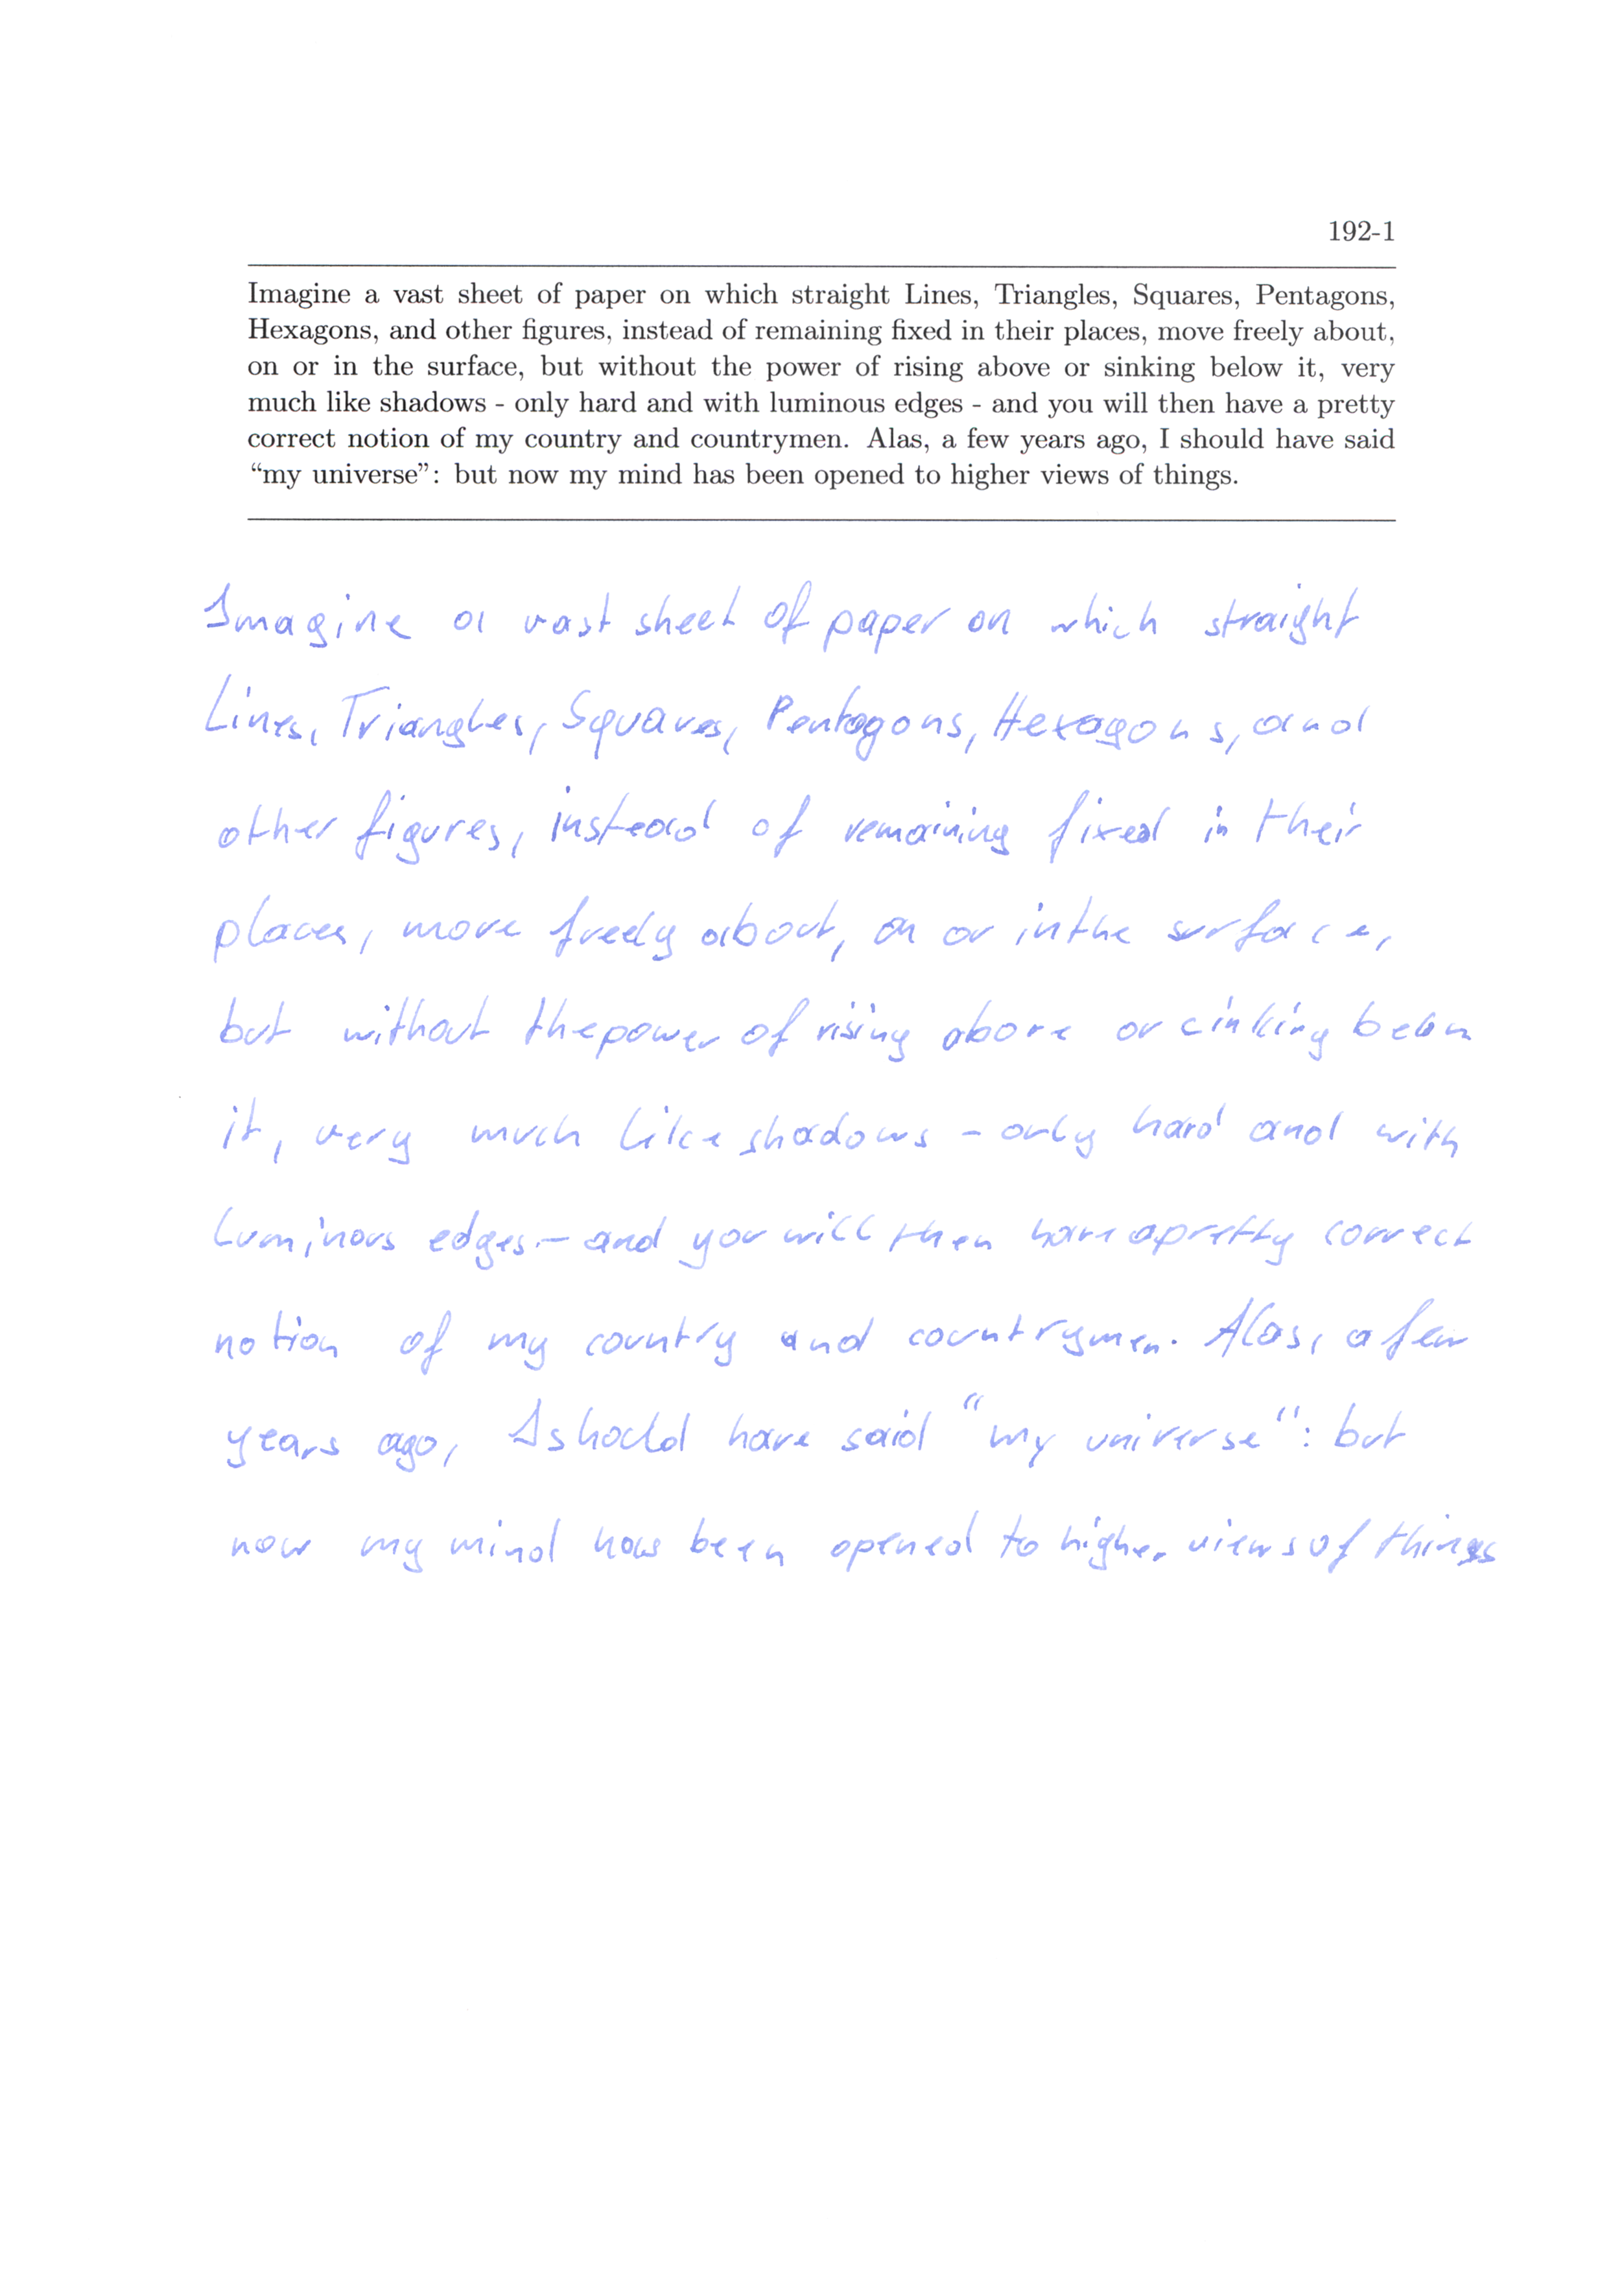 192-1
Imagine a vast sheet of paper on which straight Lines, Triangles, Squares, Pentagons,
Hexagons, and other figures, instead of remaining fixed in their places, move freely about,
on or in the surface, but without the power of rising above or sinking below it, very
much like shadows - only hard and with luminous edges - and you will then have a pretty
correct notion of my country and countrymen. Alas, a few years ago, I should have said
“my universe”: but now my mind has been opened to higher views of things.
Imagine a vast sheet of paper on which straight
Lines, Triangles, Squares, Pentagons, Hexagons, and
other figures, instead of remaining fixed in their
places, move freely about, on or in the surface,
but without the power of rising above or cinking below
it, very much like shadows - only hard and with
luminous edges - and you will then have a pretty correct
notion of my country and countrymen. Alas, a few
years ago, I should have said “my universe”: but
now my mind has been opened to higher views of things